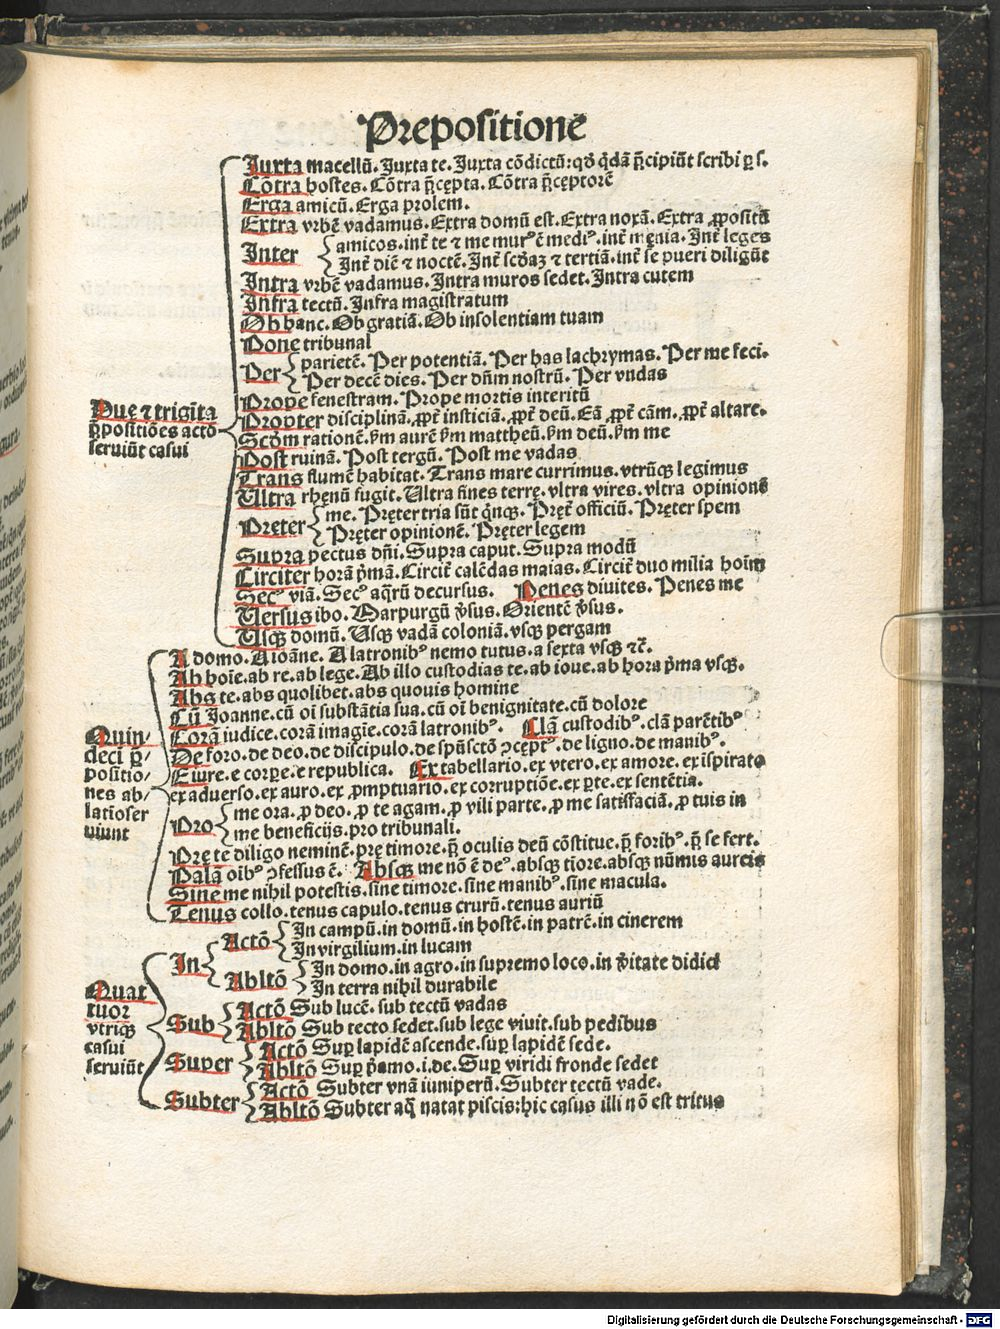 Prepositionē
Iuxta macellū. Iuxta te. Iuxta cōdictū: qd̄ q̄dā p̄cipiūt scribi ꝑ s.
Cōtra hostes. Cōtra p̄cepta. Cōtra p̄ceptorē
Erga amicū. Erga prolem.
Extra vrbē vadamus. Extra domū est. Extra noxā. Extra ꝓpositū
Inter
amicos. int̄ te ⁊ me murꝰ ē mediꝰ. int̄ męnia. Int̄ leges
Int̄ diē ⁊ noctē. Int̄ scd̄aꝫ ⁊ tertiā. int̄ se pueri diligūt
Intra vrbē vadamus. Intra muros sedet. Intra cutem
Infra tectū. Infra magistratum
Ob hanc. Ob gratiā. Ob insolentiam tuam
Pone tribunal
Per
parietē. Per potentiā. Per has lachrymas. Per me feci.
Per decē dies. Per dn̄m nostrū. Per vndas
Prope fenestram. Prope mortis interitū
Duę ⁊ trigīta
p̄positiōes actō
seruiūt casui
Propter disciplinā. ꝓpt̄ insticiā. ꝓpt̄ deū. Eā ꝓpt̄ cām. ꝓpt̄ altare.
Scd̄m rationē. ẜm aurē ẜm mattheū. ẜm deū. ẜm me
Post ruinā. Post tergū. Post me vadas
Trans flumē habitat. Trans mare currimus. vtrūqꝫ legimus
Ultra rhenū fugit. Ultra fines terrę. vltra vires. vltra opinionē
Pręter
me. Pręter tria sūt q̄nqꝫ. Pręt̄ officiū. Pręter spem
Pręter opinionē. Pręter legem
Supra pectus dn̄i. Supra caput. Supra modū
Circiter horā p̄mā. Circit̄ calēdas maias. Circit̄ duo milia hoīm
Secꝰ viā. Secꝰ aq̄rū decursus. Penes diuites. Penes me
Uersus ibo. Marpurgū v̄sus. Orientē v̄sus.
Usqꝫ domū. Usqꝫ vadā coloniā. vsqꝫ pergam
A domo. A ioāne. A latronibꝰ nemo tutus. a sexta vsqꝫ ⁊c̄.
Ab hoīe. ab re. ab lege. Ab illo custodias te. ab ioue. ab hora p̄ma vsqꝫ.
Abs te. abs quolibet. abs quouis homine
Cū Joanne. cū oī substātia sua. cū oī benignitate. cū dolore
Corā iudice. corā imagīe. corā latronibꝰ. Clā custodibꝰ. clā parētibꝰ
Quin/
deci p̄
positio/
nes ab/
latīoser
uiunt
De foro. de deo. de discipulo. de spūsctō ↄceptꝰ. de ligno. de manibꝰ.
E iure. e corꝑe. e republica. Ex tabellario. ex vtero. ex amore. ex ispirato
ex aduerso. ex auro. ex ꝓmptuario. ex corruptiōe. ex ꝑte. ex sentētia.
Pro
me ora. ꝓ deo. ꝓ te agam. ꝓ vili parte. ꝓ me satisfaciā. ꝓ tuis in
me beneficijs. pro tribunali.
Prę te diligo neminē. prę timore. p̄ oculis deū cōstitue. p̄ foribꝰ. p̄ se fert.
Palā oībꝰ ↄfessus ē. Absqꝫ me nō ē deꝰ. absqꝫ tiore. absqꝫ nūmis aureis
Sine me nihil potestis. sine timore. sine manibꝰ. sine macula.
Tenus collo. tenus capulo. tenus crurū. tenus auriū
Quat
tuor
vtriqꝫ
casui
seruiūt
In
Actō
In campū. in domū. in hostē. in patrē. in cinerem
In virgilium. in lucam
Abltō
In domo. in agro. in supremo loco. in v̄itate didici
In terra nihil durabile
Sub
Actō Sub lucē. sub tectū vadas
Abltō Sub tecto sedet. sub lege viuit. sub pedibus
Super
Actō Suꝑ lapidē ascende. suꝑ lapidē sede.
Abltō Suꝑ p̄amo. i. de. Suꝑ viridi fronde sedet
Subter
Actō Subter vnā iuniperū. Subter tectū vade.
Abltō Subter aq̄ natat piscis: hic casus illi nō est tritus
Digitalisierung gefördert durch die Deutsche Forschungsgemeinschaft - DFG